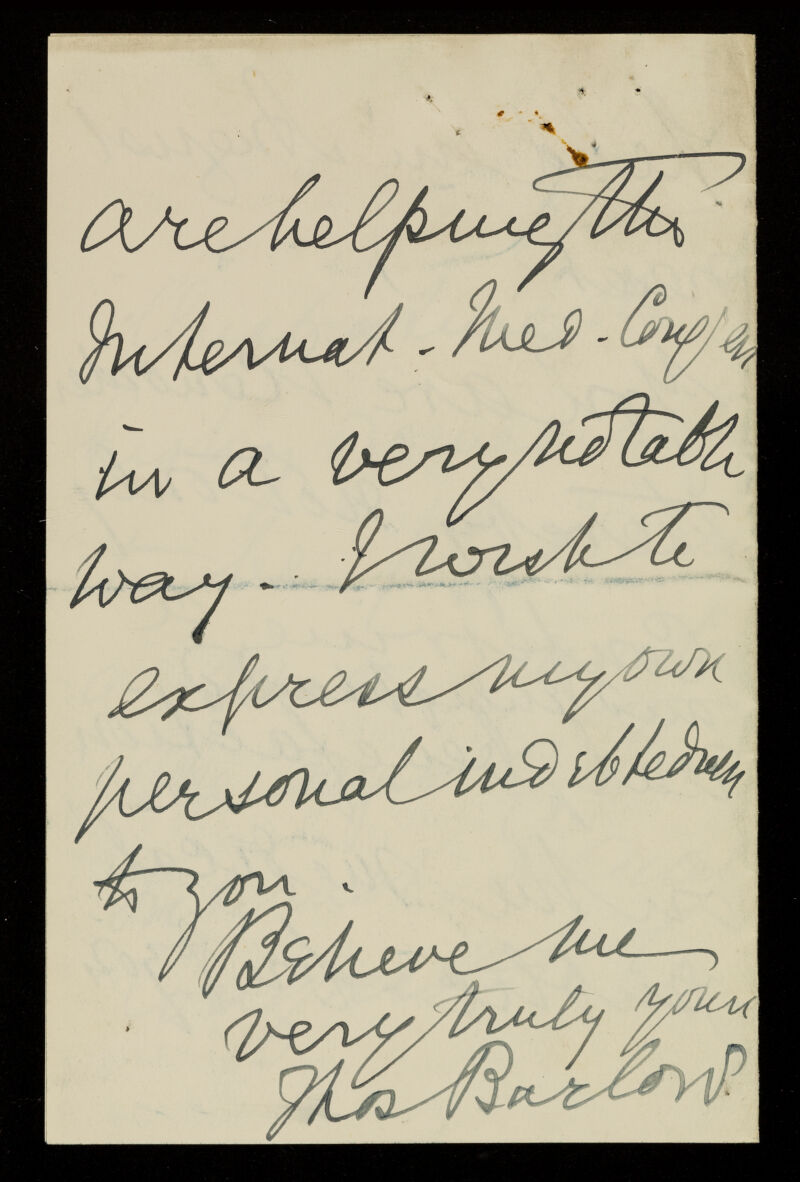 are helping this
Internat. Med. Congress
in a very notable
way. I wish to
express my own
personal indebtedness
to you.
Believe me
very truly yours
Thos Barlow